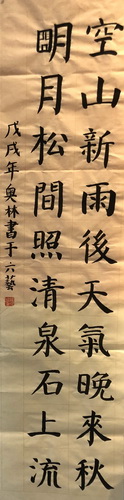 空山新雨後天氣晚來秋
明月松間照清泉石上流
戊戌年奥林書于六藝